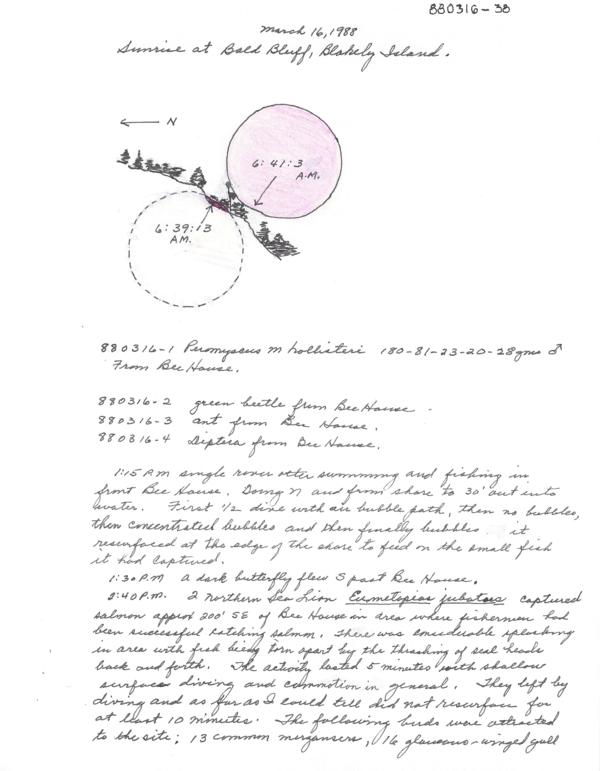 880316-38
March 16, 1988
Sunrise at Bald Bluff, Blakely Island.
N
6:41:3
A.M.
6:39:13
AM.
880316-1 Peromyscus m hollisteri 180-81-23-20-28gms ♂
From Bee House.
880316-2 green beetle from Bee House.
880316-3 ant from Bee House.
880316-4 Diptera from Bee House.
1:15 P.M single river otter swimming and fishing in
front Bee House. Going N and from shore to 30' out into
water. First 1/2 dive with air bubble path, then no bubbles,
then concentrated bubbles and then finally bubbles it
resurfaced at the edge of the shore to feed on the small fish
it had captured.
1:30 P.M a dark butterfly flew S past Bee House.
2:40 P.M. 2 northern Sea Lion Eumetopias jubatus captured
salmon approx 200' SE of Bee House in area where fishermen had
been successful catching salmon. There was considerable splashing
in area with fish being torn apart by the thrashing of seal heads
back and forth. The activity lasted 5 minutes with shallow
surface diving and commotion in general. They left by
diving and as far as I could tell did not resurface for
at least 10 minutes. The following birds were attracted
to the site; 13 common mergansers, 16 glaucous-winged gull